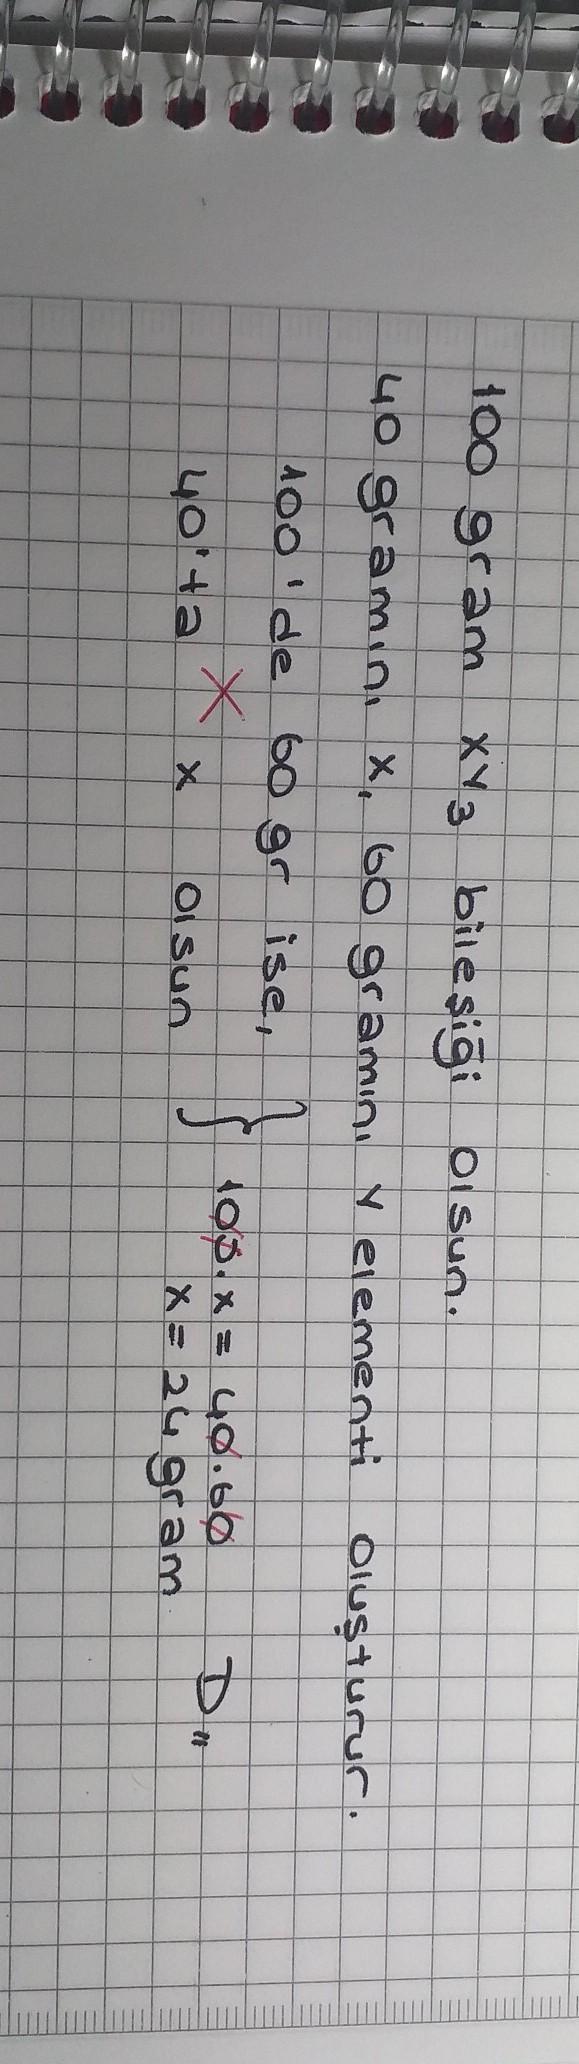 100 gram XY3 bileşiği olsun.
40 gramını X, 60 gramını Y elementi oluşturur.
100'de 60 gr ise,
40'ta x olsun
100.x = 40.60
x = 24 gram
D"